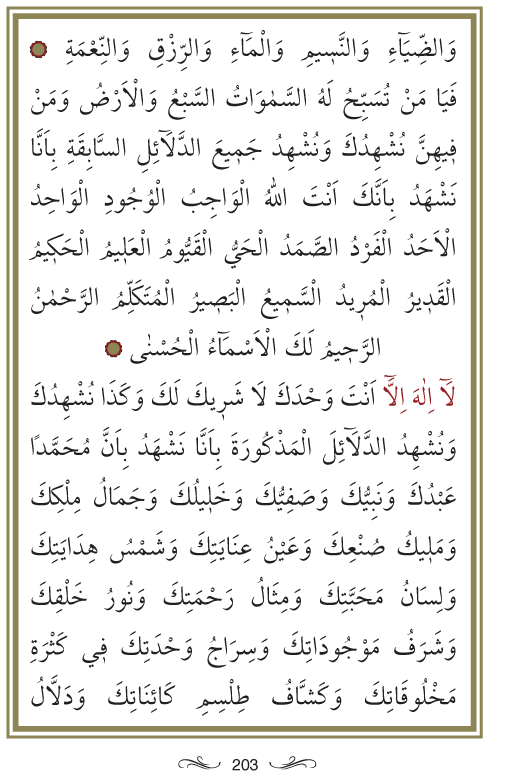 وَالضِّيَٓاءِ وَالنَّسٖيمِ وَالْمَٓاءِ وَالرِّزْقِ وَالنِّعْمَةِ
فَيَا مَنْ تُسَبِّحُ لَهُ السَّمٰوَاتُ السَّبْعُ وَالْاَرْضُ وَمَنْ
فٖيهِنَّ نُشْهِدُكَ وَنُشْهِدُ جَمٖيعَ الدَّلَٓائِلِ السَّابِقَةِ بِاَنَّا
نَشْهَدُ بِاَنَّكَ اَنْتَ اللّٰهُ الْوَاجِبُ الْوُجُودِ الْوَاحِدُ
الْاَحَدُ الْفَرْدُ الصَّمَدُ الْحَيُّ الْقَيُّومُ الْعَلٖيمُ الْحَكٖيمُ
الْقَدٖيرُ الْمُرٖيدُ السَّمٖيعُ الْبَصٖيرُ الْمُتَكَلِّمُ الرَّحْمٰنُ
الرَّحٖيمُ لَكَ الْاَسْمَٓاءُ الْحُسْنٰى
لَٓا اِلٰهَ اِلَّٓا اَنْتَ وَحْدَكَ لَا شَرٖيكَ لَكَ وَكَذَا نُشْهِدُكَ
وَنُشْهِدُ الدَّلَٓائِلَ الْمَذْكُورَةَ بِاَنَّا نَشْهَدُ بِاَنَّ مُحَمَّدًا
عَبْدُكَ وَنَبِيُّكَ وَصَفِيُّكَ وَخَلٖيلُكَ وَجَمَالُ مِلْكِكَ
وَمَلٖيكُ صُنْعِكَ وَعَيْنُ عِنَايَتِكَ وَشَمْسُ هِدَايَتِكَ
وَلِسَانُ مَحَبَّتِكَ وَمِثَالُ رَحْمَتِكَ وَنُورُ خَلْقِكَ
وَشَرَفُ مَوْجُودَاتِكَ وَسِرَاجُ وَحْدَتِكَ فٖي كَثْرَةِ
مَخْلُوقَاتِكَ وَكَشَّافُ طِلْسِمِ كَائِنَاتِكَ وَدَلَّالُ
203